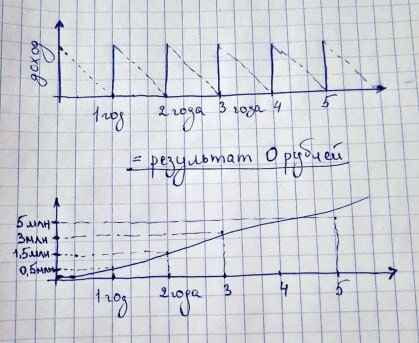 доход
1 год 2 года 3 года 4 5
= результат 0 рублей
5 млн
3 млн
1,5 млн
0,5 млн
1 год 2 года 3 4 5